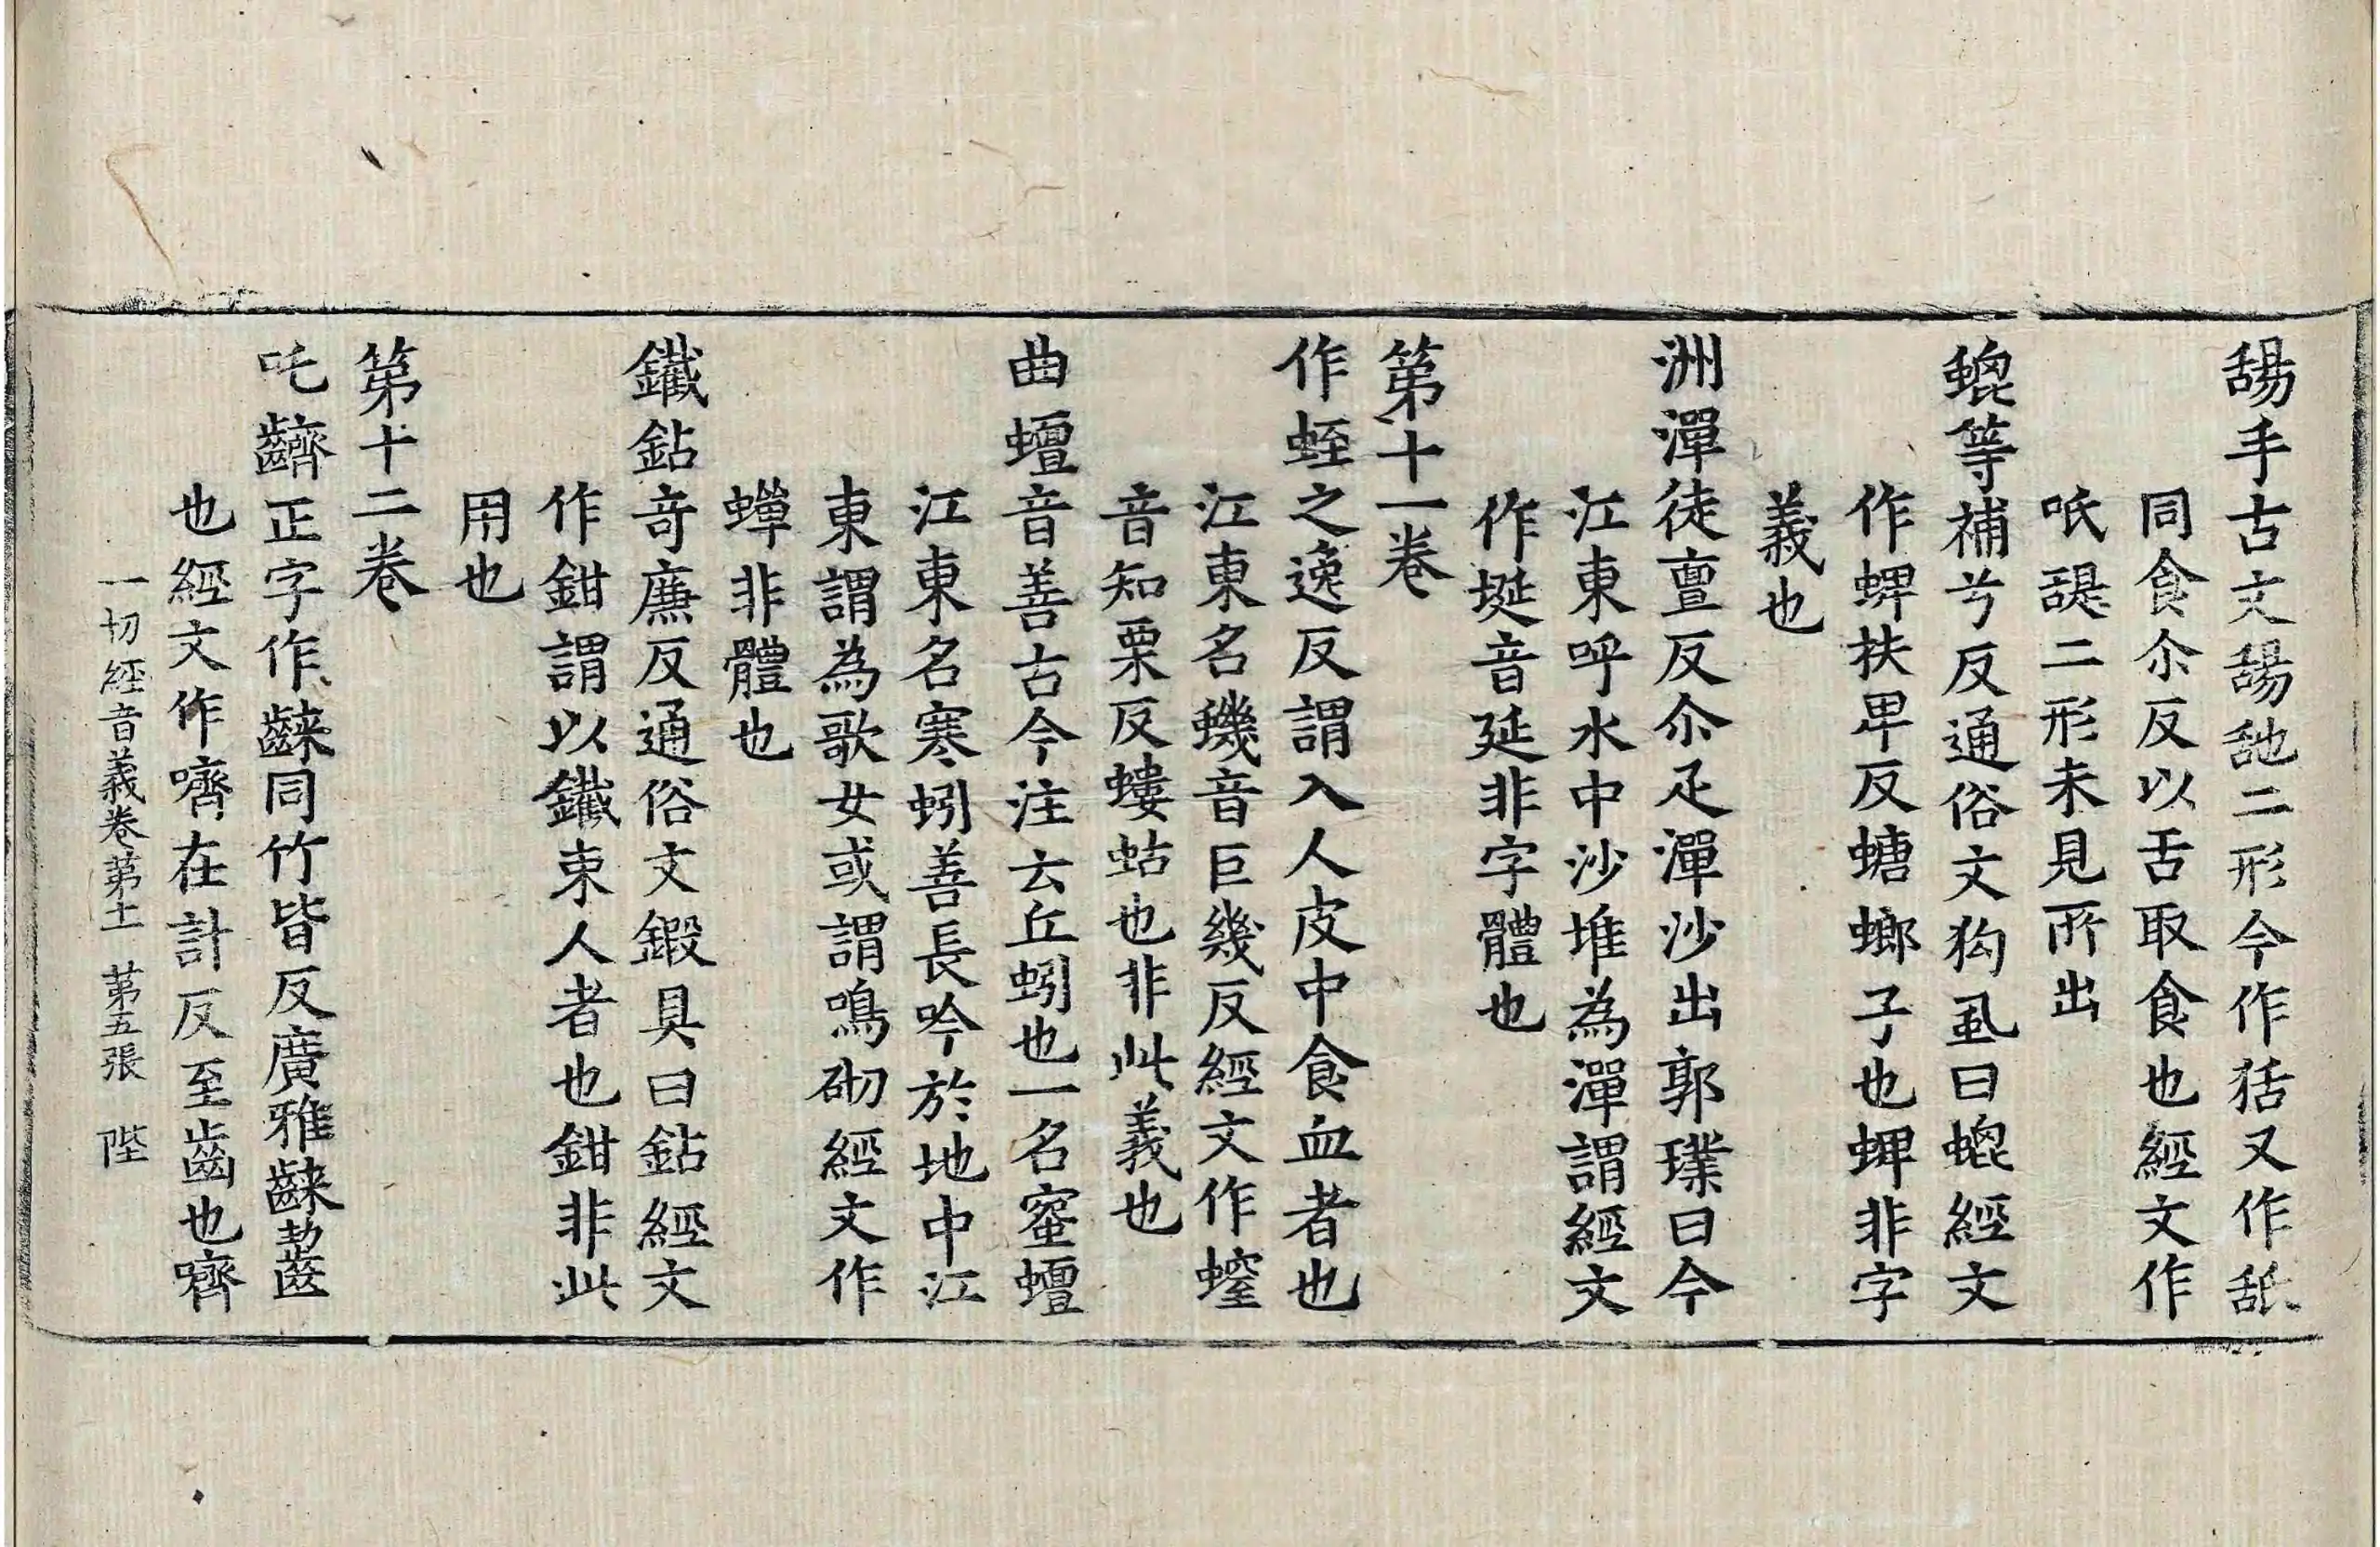 手古文二形今作狧又作舐
同食尒反以舌取食也經文作
㖷二形未見所出
螕等補兮反通俗文狗虱曰螕經文
作蜱扶卑反螗蜋子也蜱非字
義也
洲潬徒亶反尒疋潬沙出郭璞曰今
江東呼水中沙堆為潬謂經文
作埏音延非字體也
第十一卷
作蛭之逸反謂入人皮中食血者也
江東名蟣音巨幾反經文作螲
音知栗反螻蛄也非此義也
曲蟺音善古今注云丘蚓也一名蜜蟺
江東名寒蚓善長吟於地中江
東謂為歌女或謂鳴砌經文作
蟬非體也
鐵鉆奇廉反通俗文鍛具曰鉆經文
作鉗謂以鐵束人者也鉗非此
用也
第十二卷
吒齊正字作同竹皆反廣雅齧
也經文作嚌在計反至齒也嚌
一切經音義卷第十一 第五張 陛